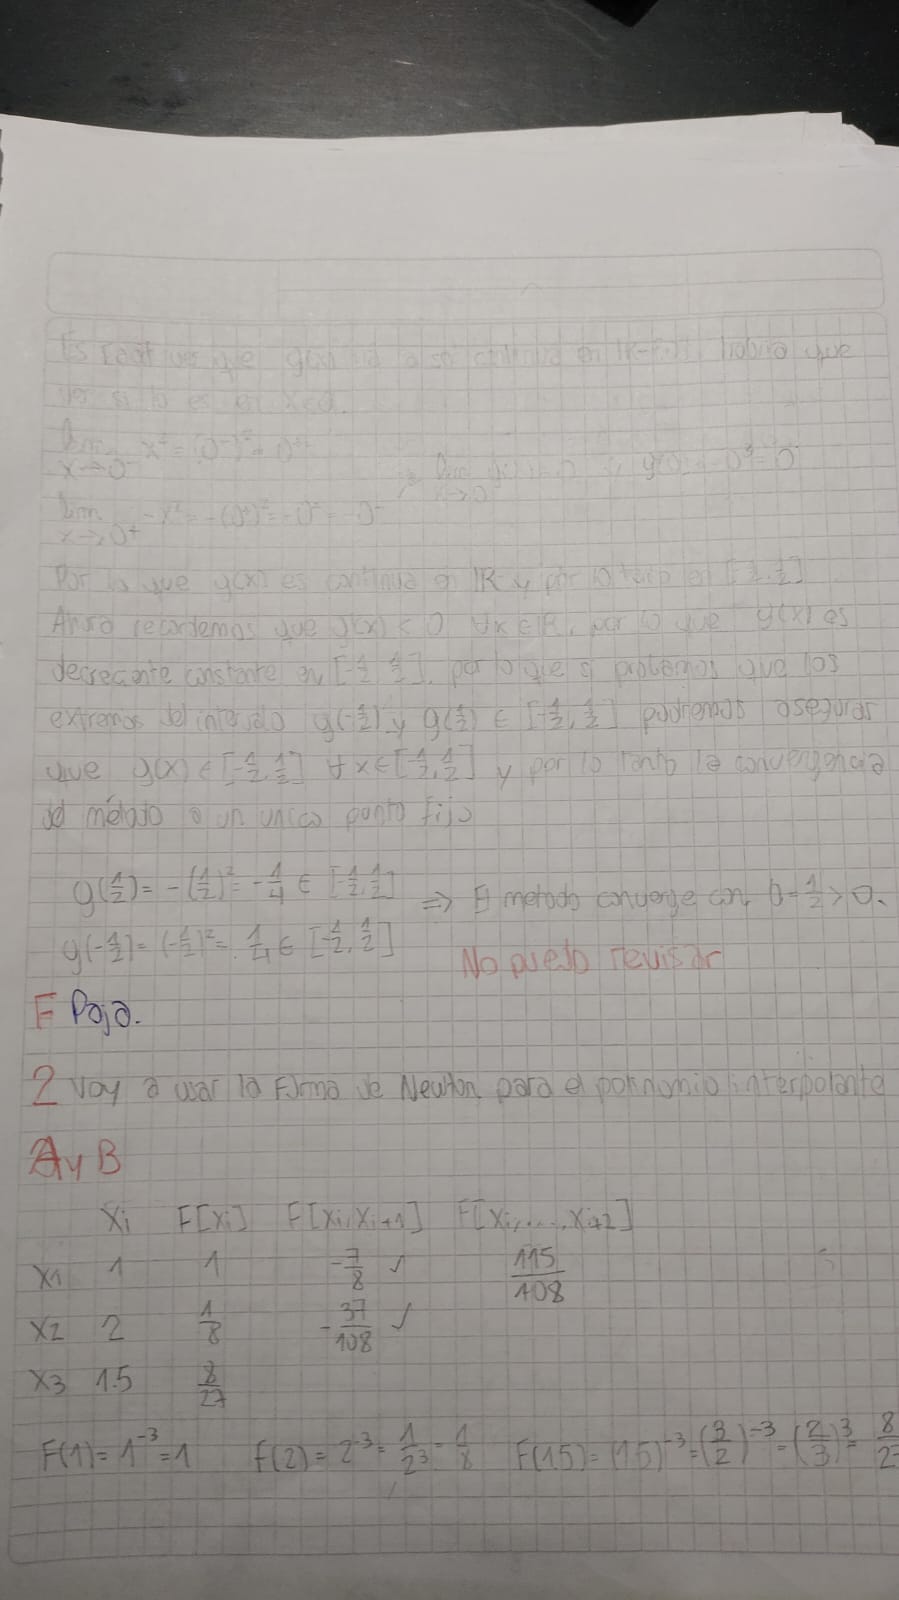 Es que g(x) en que
ver si lo es en x=0.
lim x→0⁻ x² = (0⁻)² = 0⁺
lim x→0 g(0) = -0² = 0
lim x→0⁺ -x² = -(0⁺)² = -0² = -0⁻
Por lo que g(x) es continua en ℝ y por lo tanto en [-1/2, 1/2]
Ahora recordemos que g(x) < 0 ∀x∈ℝ, por lo que g(x) es
decreciente constante en [-1/2, 1/2], por lo que si probamos que los
extremos del intervalo g(-1/2) y g(1/2) ∈ [-1/2, 1/2] podremos asegurar
que g(x) ∈ [-1/2, 1/2] ∀x∈[-1/2, 1/2] y por lo tanto la convergencia
del método a un unico punto fijo
g(1/2) = -(1/2)² = -1/4 ∈ [-1/2, 1/2]
⇒ El metodo converge con
g(-1/2) = (-1/2)² = 1/4 ∈ [-1/2, 1/2]
No puedo revisar
F Paja.
2 Voy a usar la forma de Newton para el polinomio interpolante
A y B
Xi F[Xi] F[Xi,Xi+1] F[Xi,...,Xi+2]
X1 1 1 -7/8 ✓ 115/108
X2 2 1/8 -37/108 ✓
X3 1.5 8/27
F(1) = 1⁻³ = 1 F(2) = 2⁻³ = 1/2³ = 1/8 F(1.5) = (1.5)⁻³ = (3/2)⁻³ = (2/3)³ = 8/2